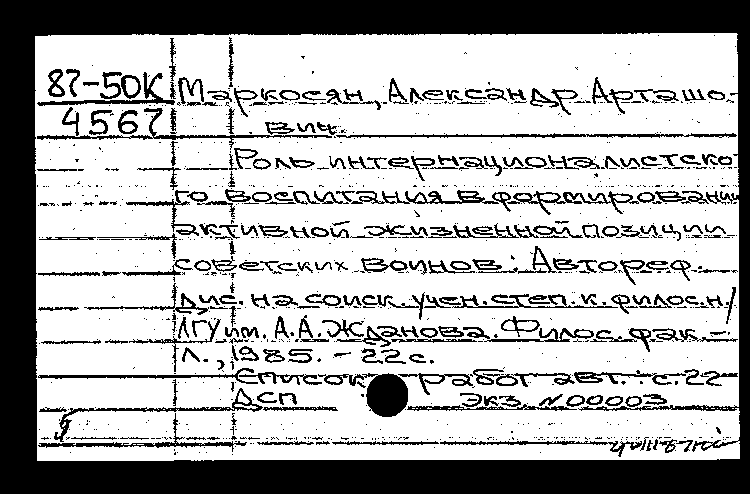 87-50К Маркосян, Александр Арташо-
4567 вич.
Роль интернационалистско
го воспитания в формировании
активной жизненной позиции
советских воинов: Автореф.
дис. на соиск. учен. степ. к. филос. н./
ЛГУ им. А.А. Жданова. Филос. фак. –
Л., 1985. – 22 с.
Список работ авт.: с. 22
ДСП Экз. N 00003